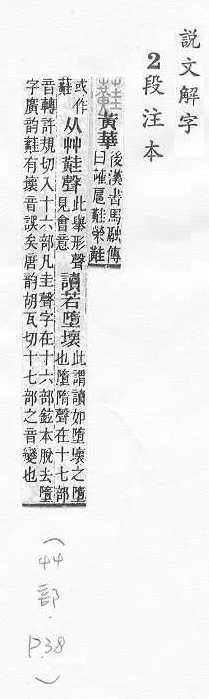 說文解字
2段注本
黃華 後漢書馬融傳
曰蓶扈蘳熒蘳
或作
蘳
从艸黊聲 此舉形聲
見會意
讀若墮壞 此謂讀如墮壞之墮
也墮隋聲在十七部
音轉許規切入十六部凡圭聲字在十六部鉉本脫去墮
字廣韵蘳有壞音誤矣唐韵胡瓦切十七部之音變也
(艸部.P38)